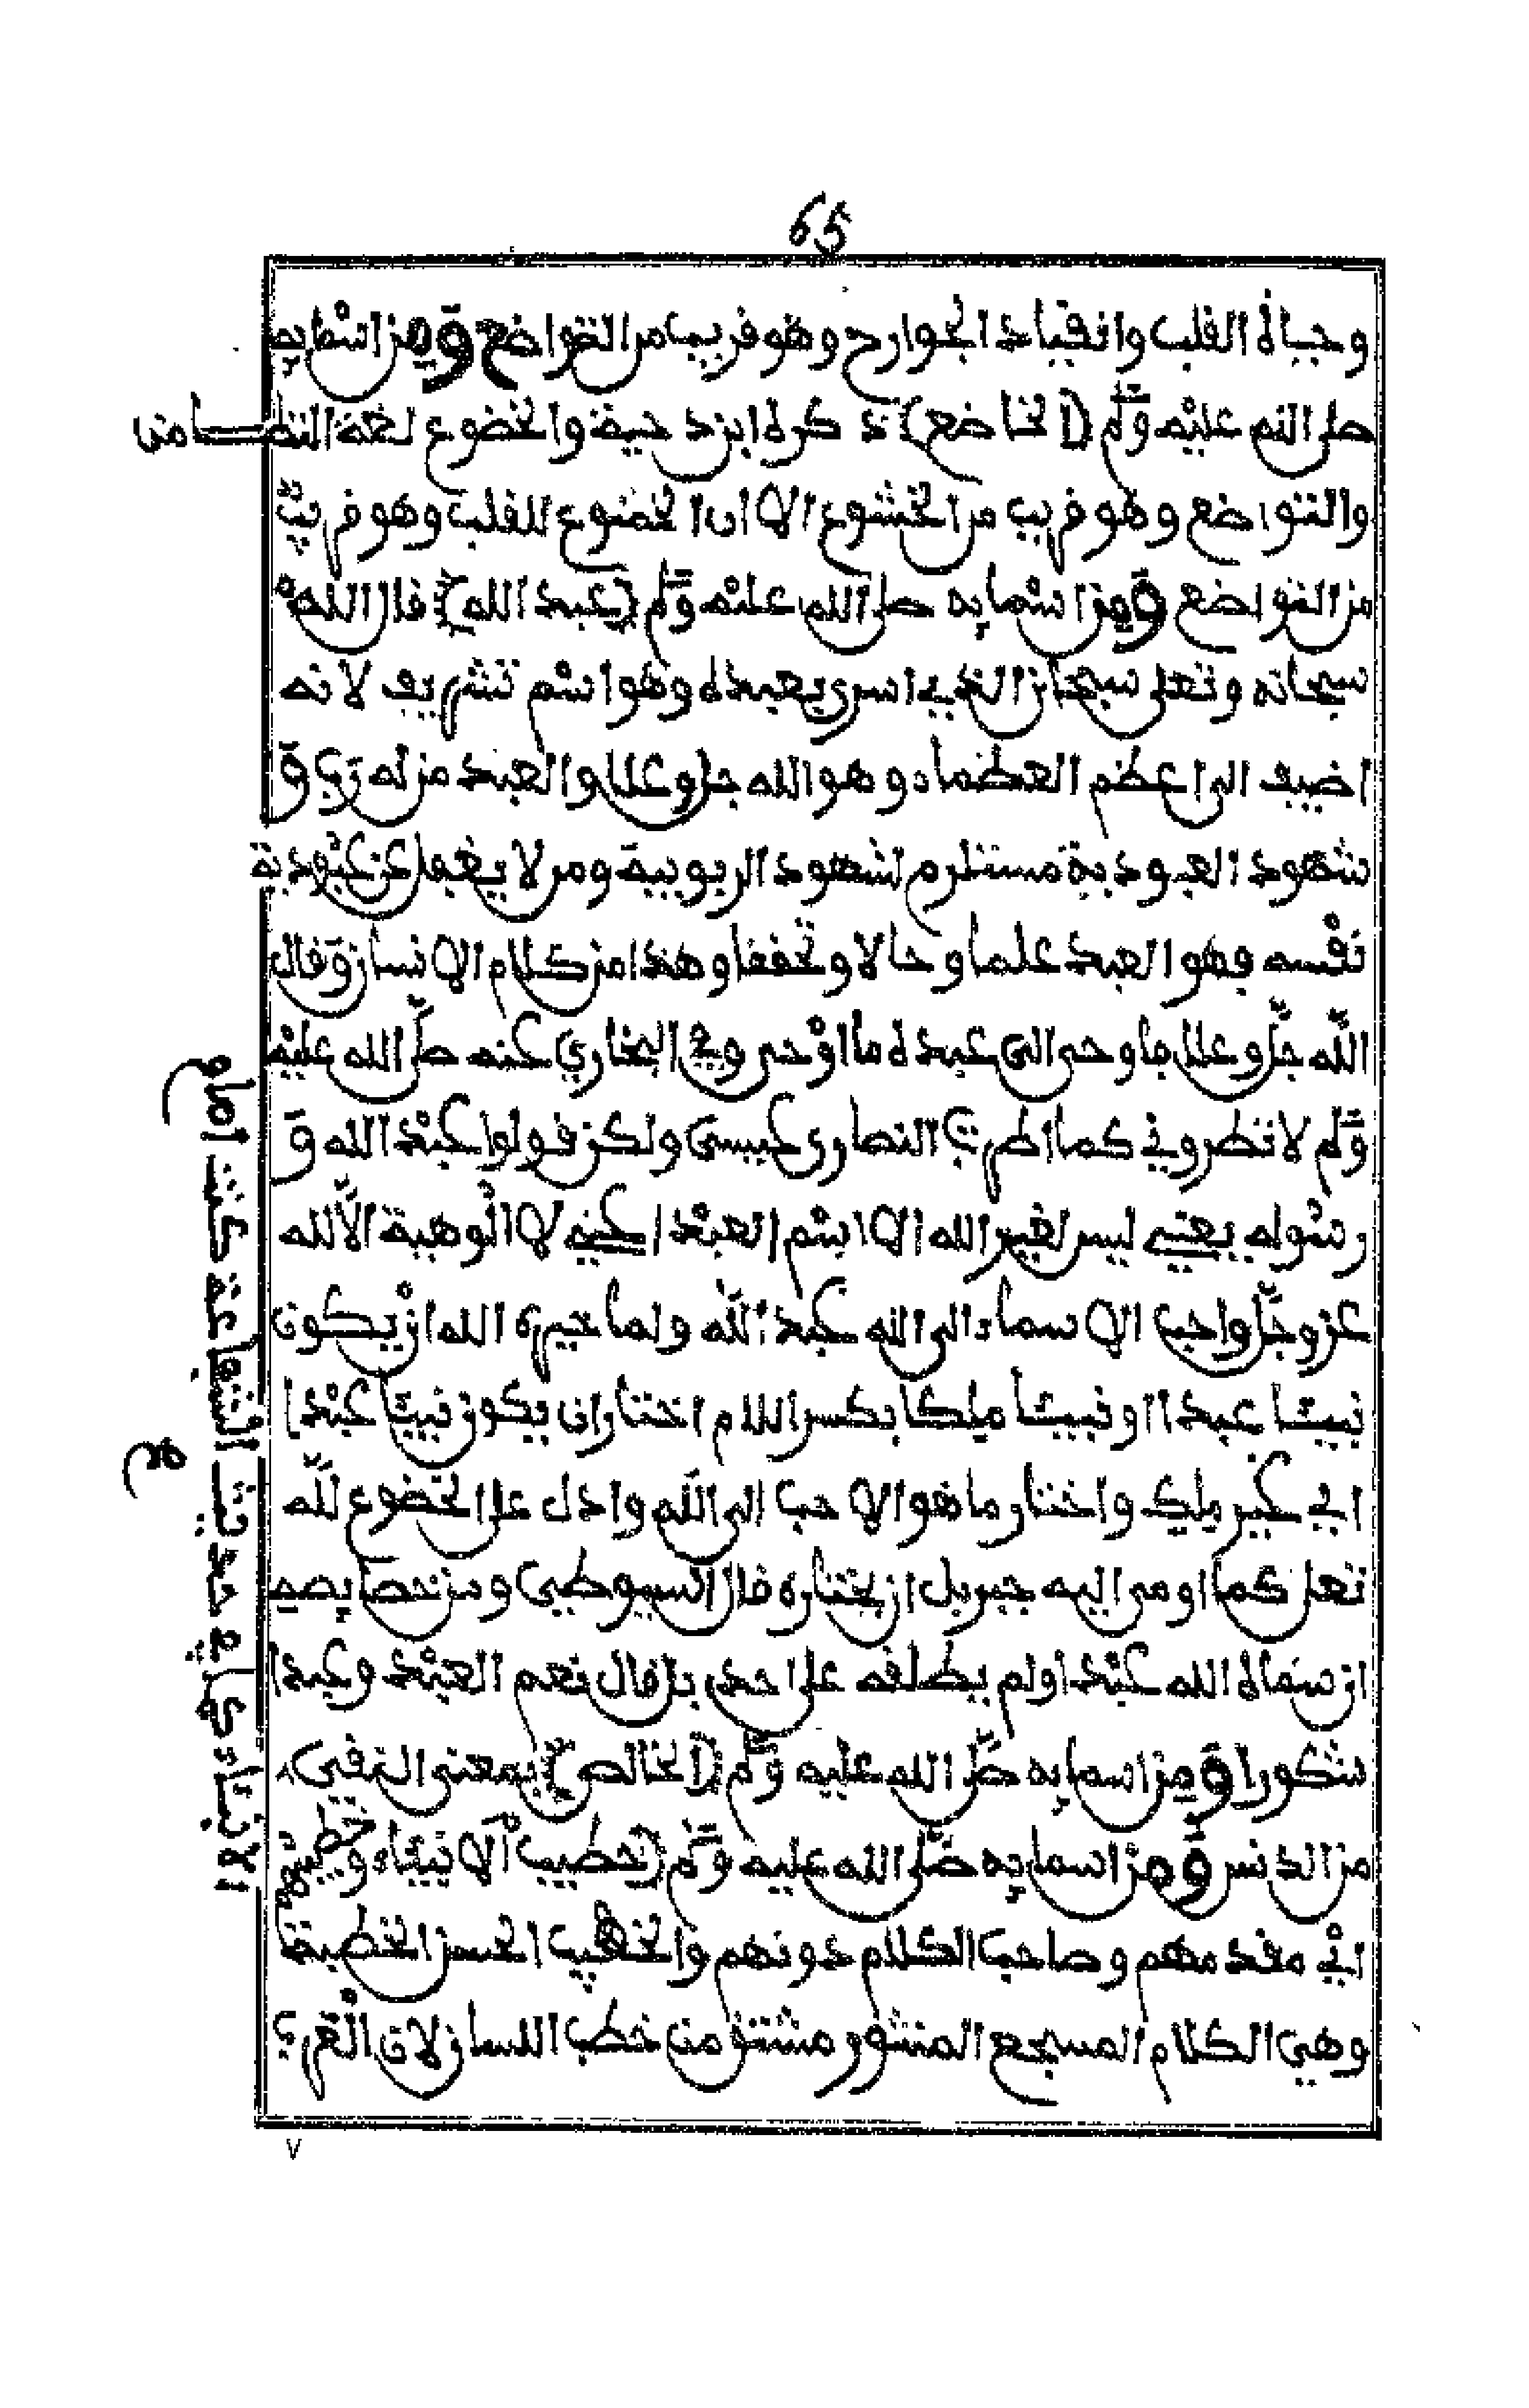 65
وحياة القلب وانقياد الجوارح وهو قريب من التواضع ومن اسمايه
صلى الله عليه وسلم (الخاضع) ذكره ابن دحية والخضوع لغة التطامن
والتواضع وهو قريب من الخشوع الا ان الخضوع للقلب وهو قريب
من التواضع ومن اسمايه صلى الله عليه وسلم (عبد الله) قال الله
سبحانه وتعلى سبحان الذي اسرى بعبده وهو اسم تشريف لانه
اضيف الى اعظم العظماء وهو الله جل وعلا والعبد من له رق و
شهود العبودية مستلزم لشهود الربوبية ومن لا يغفل عن عبودية
نفسه فهو العبد علما وحالا وتحققا وهذا من كلام الانسان وقال
الله جل وعلا فاوحى الى عبده ما اوحى وفي البخاري عنه صلى الله عليه
وسلم لا تطروني كما اطرت النصارى عيسى ولكن قولوا عبد الله و
رسوله يعني ليس لغير الله الا اسم العبد اعني لا الوهية الا لله
عز وجل واحب الاسماء الى الله عبد الله ولما خيره الله ان يكون
نبيئا عبدا او نبيئا ملكا بكسر اللام اختار ان يكون نبيئا عبدا
اي غير ملك واختار ما هو الاحب الى الله وادل على الخضوع لله
تعلى كما اومى اليه جبريل ان يختاره قال السيوطي ومن خصايصه
ان سماه الله عبدا ولم يطلقه على احد بل قال نعم العبد وعبدا
شكورا ومن اسمايه صلى الله عليه وسلم (الخالص) بمعنى النقي
من الدنس ومن اسمايه صلى الله عليه وسلم (خطيب الانبياء وخطيبهم)
اي مقدمهم وصاحب الكلام دونهم والخطيب الحسن الخطبة
وهي الكلام المسجع المنثور مشتق من خطب اللسان لان العرب
الانبياء كما في حديث الشفاعة كنت امام
صح
٧